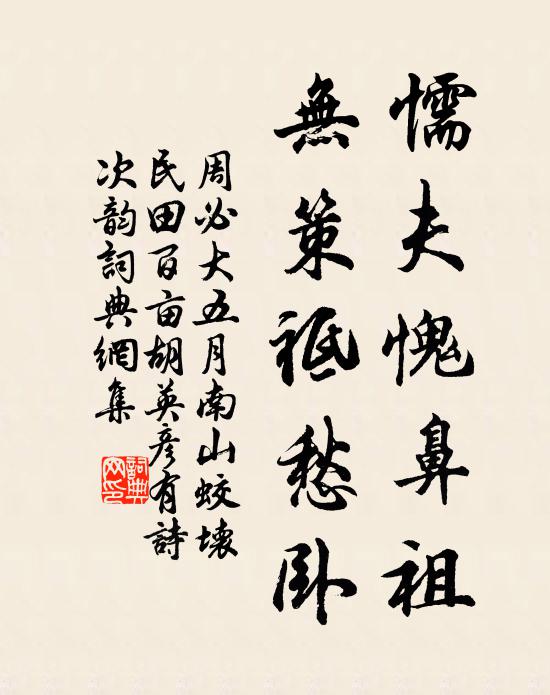 懦夫愧鼻祖
無策祗愁臥
周必大五月南山蛟壊
民田百亩胡英彦有詩
次韵詞典網集
詞典网印